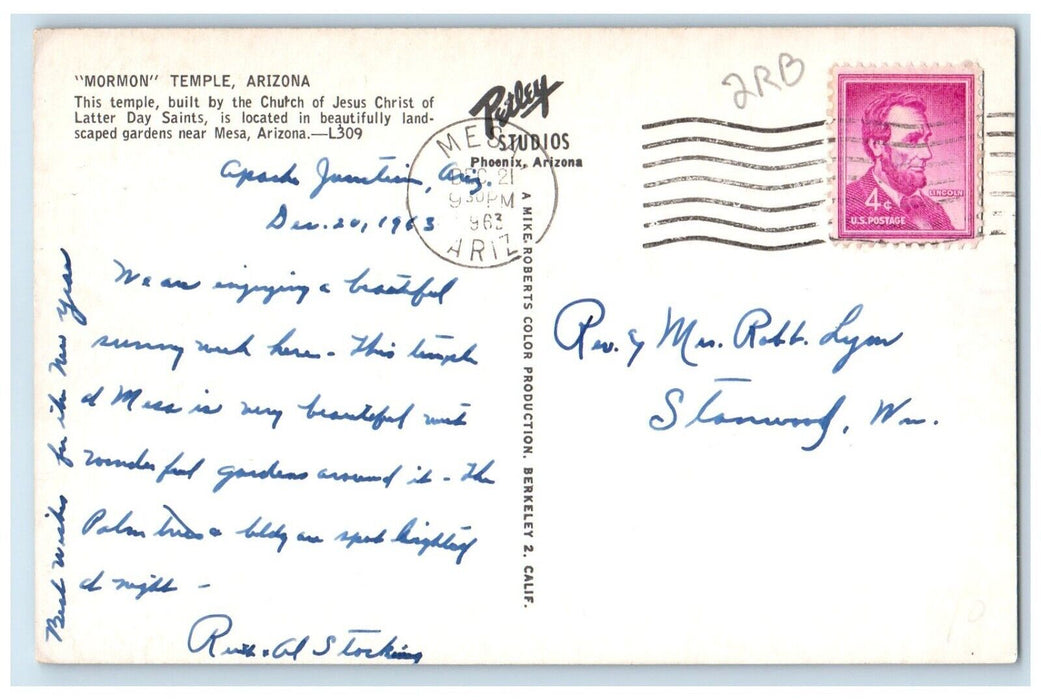 "MORMON" TEMPLE, ARIZONA
This temple, built by the Church of Jesus Christ of
Latter Day Saints, is located in beautifully land-
scaped gardens near Mesa, Arizona.—L309
Petley
STUDIOS
Phoenix, Arizona
2RB
MESA
DEC 21
9 30 PM
1963
ARIZ
4¢
U.S. POSTAGE
LINCOLN
A MIKE ROBERTS COLOR PRODUCTION. BERKELEY 2. CALIF.
Apache Junction, Ariz.
Dec. 20, 1963
We are enjoying a beautiful
sunny week here - This temple
at Mesa is very beautiful with
wonderful gardens around it - The
Palm trees & bldg are spot lighted
at night -
Ruth & Al Stocking
Best wishes for the New Year
Rev. & Mrs. Robt. Lyon
Stanwood, Wn.